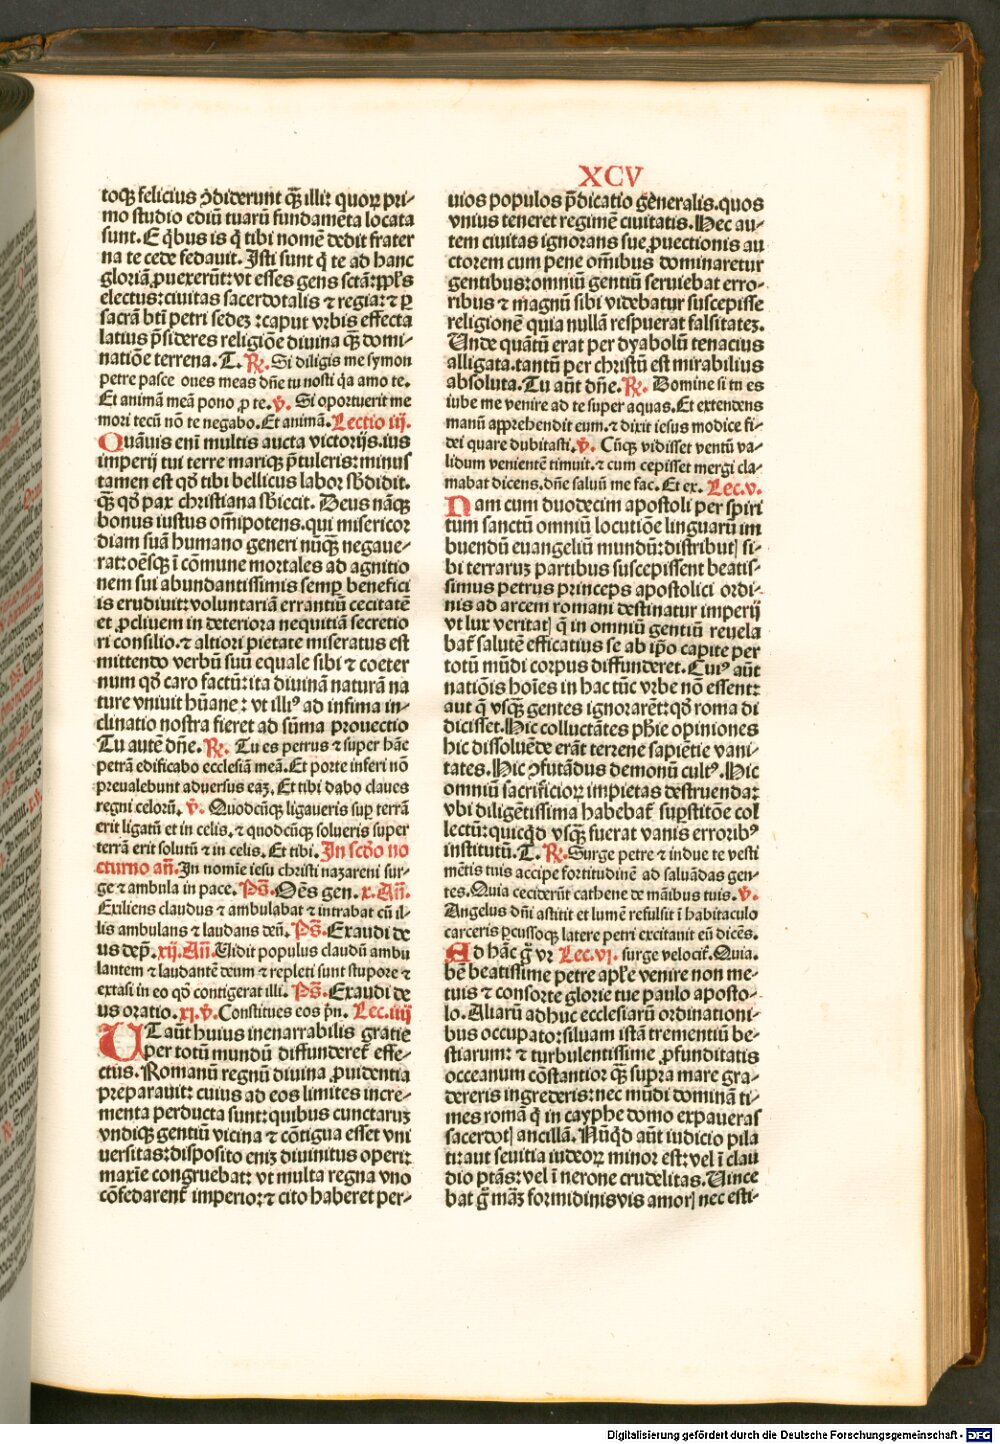 XCV
toqꝫ felicius ꝯdiderunt qȝ̄ illi: quoꝝ pri⸗
mo studio ediū tuarū fundamēta locata
sunt. E q̇bus is q̇ tibi nomē dedit frater
na te cede fedauit. Isti sunt q̇ te ad hanc
gloriā ꝓuexerūt: vt esses gens sctā: ppls
electus: ciuitas sacerdotalis ⁊ regia: ⁊ ꝑ
sacrā bti petri sedeꝫ: caput vrbis effecta
latius p̄sideres religiōe diuina qȝ̄ domi⸗
natiōe terrena. T. ℟. Si diligis me symon
petre pasce oues meas dn̄e tu nosti q̇a amo te.
Et animā meā pono ꝓ te. ℣. Si oportuerit me
mori tecū nō te negabo. Et animā. Lectio iij.
Quāuis eni multis aucta victorijs. ius
imperij tui terre mariqꝫ p̄tuleris: minus
tamen est qd̄ tibi bellicus labor sb̄didit.
qȝ̄ qd̄ pax christiana sb̄iecit. Deus nāqꝫ
bonus iustus om̄ipotens. qui misericor
diam suā humano generi nūqȝ̄ negaue⸗
rat: oēsqꝫ ī cōmune mortales ad agnitio
nem sui abundantissimis semꝑ benefici
is erudiuit: voluntariā errātiū cecitatē
et ꝓcliuem in deteriora nequitiā secretio
ri consilio. ⁊ altiori pietate miseratus est
mittendo verbū suū equale sibi ⁊ coeter
num qd̄ caro factū: ita diuinā naturā na
ture vniuit hūane: vt illiꝰ ad infima in⸗
clinatio nostra fieret ad sūma prouectio
Tu autē dn̄e. ℟. Tu es petrus ⁊ super hāc
petrā edificabo ecclesiā meā. Et porte inferi nō
preualebunt aduersus eaꝫ. Et tibi dabo claues
regni celorū. ℣. Quodcūqꝫ ligaueris suꝑ terrā
erit ligatū et in celis. ⁊ quodcūqꝫ solueris super
terrā erit solutū ⁊ in celis. Et tibi. In scd̄o no
cturno an̄. In nomīe iesu christi nazareni sur⸗
ge ⁊ ambula in pace. Ps̄. Oēs gen. x. An̄.
Exiliens claudus ⁊ ambulabat ⁊ intrabat cū il⸗
lis ambulans ⁊ laudans deū. Ps̄. Exaudi de
us deꝑ. xij. An̄. Uidit populus claudū ambu
lantem ⁊ laudantē deum ⁊ repleti sunt stupore ⁊
extasi in eo qd̄ contigerat illi. Ps̄. Exaudi de
us oratio. xj. ℣. Constitues eos p̄n. Lec. iiij
UT aūt huius inenarrabilis gratie
per totū mundū diffunderet̄ effe⸗
ctus. Romanū regnū diuina ꝓuidentia
preparauit: cuius ad eos limites incre⸗
menta perducta sunt: quibus cunctaruꝫ
vndiqꝫ gentiū vicina ⁊ cōtigua esset vni
uersitas: disposito eniꝫ diuinitus operi:
maxīe congruebat: vt multa regna vno
cōfedarent̄ imperio: ⁊ cito haberet per⸗
uios populos p̄dicatio generalis. quos
vnius teneret regimē ciuitatis. Hec au⸗
tem ciuitas ignorans sue ꝓuectionis au
ctorem cum pene om̄ibus dominaretur
gentibus: omniū gentiū seruiebat erro⸗
ribus ⁊ magnū sibi videbatur suscepisse
religionē quia nullā respuerat falsitateꝫ.
Unde quātū erat per dyabolū tenacius
alligata. tantū per christū est mirabilius
absoluta. Tu aūt dn̄e. ℟. Domine si tu es
iube me venire ad te super aquas. Et extendens
manū apprehendit eum. ⁊ dixit iesus modice fi⸗
dei quare dubitasti. ℣. Cūqꝫ vidisset ventū va⸗
lidum venientē timuit. ⁊ cum cepisset mergi cla⸗
mabat dicens. dn̄e saluū me fac. Et ex. Lec. v.
Nam cum duodecim apostoli per spiri
tum sanctū omniū locutiōe linguarū im
buendū euangeliū mundū: distributꝭ si⸗
bi terraruꝫ partibus suscepissent beatis⸗
simus petrus princeps apostolici ordi⸗
nis ad arcem romani destinatur imperij
vt lux veritatꝭ q̄ in omniū gentiū reuela
bat̄ salutē efficatius se ab ip̄o capite per
totū mūdi corpus diffunderet. Cuiꝰ aūt
natiōis hoīes in hac tūc vrbe nō essent:
aut q̄ vsqꝫ gentes ignorarēt: qd̄ roma di
dicisset. Hic colluctātes ph̄ie opiniones
hic dissoluēde erāt terrene sapiētie vani⸗
tates. Hic ꝯfutādus demonū cultꝰ. Hic
omniū sacrificioꝝ impietas destruenda:
vbi diligētissima habebat̄ suꝑstitōe col
lectū: quicq̇d vsqȝ̄ fuerat vanis erroribꝰ
institutū. T. ℟. Surge petre ⁊ indue te vesti
mētis tuis accipe fortitudinē ad saluādas gen⸗
tes. Quia ceciderūt cathene de māibus tuis. ℣.
Angelus dn̄i astitit et lumē refulsit ī habitaculo
carceris ꝑcussoqꝫ latere petri excitauit eū dicēs.
Ad hāc g̃ vr Lec. vj. surge velocit̄. Quia.
bē beatissime petre apl̄e venire non me⸗
tuis ⁊ consorte glorie tue paulo aposto⸗
lo. Aliarū adhuc ecclesiarū ordinationi⸗
bus occupato: siluam istā trementiū be⸗
stiarum: ⁊ turbulentissime ꝓfunditatis
occeanum cōstantior qȝ̄ supra mare gra⸗
dereris ingrederis: nec mūdi dominā ti⸗
mes romā q̇ in cayphe domo expaueras
sacerdotꝭ ancillā. Nūq̇d aūt iudicio pila
ti: aut seuitia iudeoꝝ minor est: vel ī clau
dio ptās: vel ī nerone crudelitas. Uince
bat g̃ māꝫ formidinis vis amorꝭ nec esti⸗
Digitalisierung gefördert durch die Deutsche Forschungsgemeinschaft - DFG